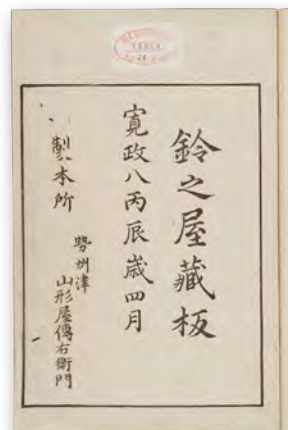 鈴之屋藏板
寛政八丙辰歳四月
製本所
勢州津
山形屋傳右衛門